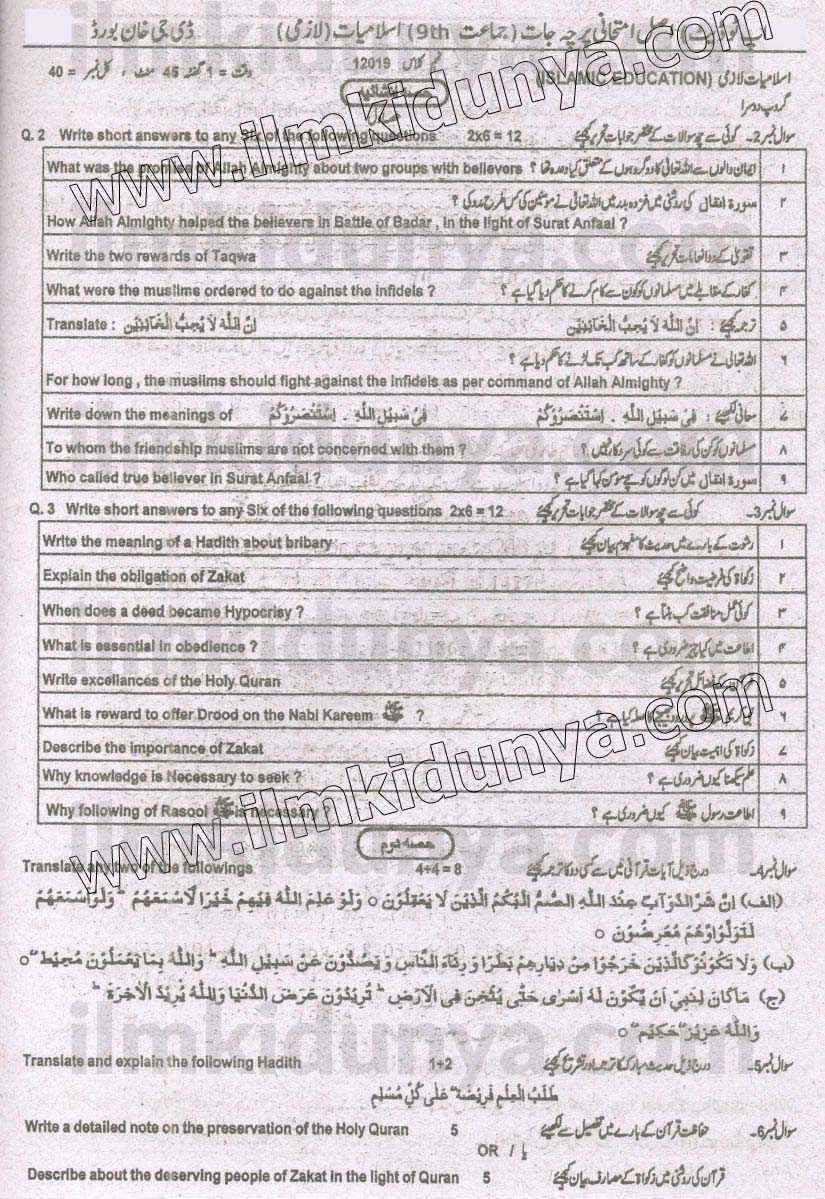 اپ ٹو ڈیٹ اصل امتحانی پرچہ جات (جماعت 9th) اسلامیات (لازمی) ڈی جی خان بورڈ
اسلامیات لازمی (ISLAMIC EDUCATION) کلاس 12019 وقت = 1 گھنٹہ 45 منٹ ، کل نمبر = 40
گروپ دوسرا
Q. 2 Write short answers to any Six of the following questions 2x6 = 12 سوال نمبر 2۔ کوئی سے چھ سوالات کے مختصر جوابات تحریر کیجئے
What was the promise of Allah Almighty about two groups with believers ایمان والوں سے اللہ تعالیٰ کا دو گروہوں کے متعلق کیا وعدہ تھا ؟ ۱
سورۃ انفال کی روشنی میں غزوہ بدر میں اللہ تعالیٰ نے مومنین کی کس طرح مدد کی ؟ ۲
How Allah Almighty helped the believers in Battle of Badar , in the light of Surat Anfaal ?
Write the two rewards of Taqwa تقویٰ کے دو انعامات تحریر کیجئے ۳
What were the muslims ordered to do against the infidels ? کفار کے مقابلے میں مسلمانوں کو کون سے کام کرنے کا حکم دیا گیا ہے ؟ ۴
Translate : اِنَّ اللّٰهَ لَا يُحِبُّ الْخَائِنِيْنَ ترجمہ کیجئے : اِنَّ اللّٰهَ لَا يُحِبُّ الْخَائِنِيْنَ ۵
اللہ تعالیٰ نے مسلمانوں کو کفار کے ساتھ کب تک لڑنے کا حکم دیا ہے ؟ ۶
For how long , the muslims should fight against the infidels as per command of Allah Almighty ?
Write down the meanings of فِیْ سَبِيْلِ اللّٰهِ ۔ اِسْتَنْصَرُوْكُمْ معانی لکھیئے : فِیْ سَبِيْلِ اللّٰهِ ۔ اِسْتَنْصَرُوْكُمْ ۷
To whom the friendship muslims are not concerned with them ? مسلمانوں کو کن کی رفاقت سے کوئی سروکار نہیں ؟ ۸
Who called true believer in Surat Anfaal ? سورۃ انفال میں کن لوگوں کو سچے مومن کہا گیا ہے ؟ ۹
Q. 3 Write short answers to any Six of the following questions 2x6 = 12 سوال نمبر 3۔ کوئی سے چھ سوالات کے مختصر جوابات تحریر کیجئے
Write the meaning of a Hadith about bribary رشوت کے بارے میں حدیث کا مفہوم بیان کیجئے ۱
Explain the obligation of Zakat زکوٰۃ کی فرضیت واضح کیجئے ۲
When does a deed became Hypocrisy ? کوئی عمل منافقت کب بنتا ہے ؟ ۳
What is essential in obedience ? اطاعت میں کیا چیز ضروری ہے ؟ ۴
Write excellances of the Holy Quran قرآن کے فضائل تحریر کیجئے ۵
What is reward to offer Drood on the Nabi Kareem ﷺ ? نبی کریم ﷺ پر درود بھیجنے کا صلہ کیا ہے ؟ ۶
Describe the importance of Zakat زکوٰۃ کی اہمیت بیان کیجئے ۷
Why knowledge is Necessary to seek ? علم سیکھنا کیوں ضروری ہے ؟ ۸
Why following of Rasool ﷺ is necessary ? اطاعت رسول ﷺ کیوں ضروری ہے ؟ ۹
حصہ دوم
Translate any two of the followings 4+4 = 8 سوال نمبر 4۔ درج ذیل آیات قرآنی میں سے کسی دو کا ترجمہ کیجئے
(الف) اِنَّ شَرَّ الدَّوَآبِّ عِنْدَ اللّٰهِ الصُّمُّ الْبُكْمُ الَّذِيْنَ لَا يَعْقِلُوْنَ ○ وَلَوْ عَلِمَ اللّٰهُ فِيْهِمْ خَيْرًا لَّاَسْمَعَهُمْ ؕ وَلَوْ اَسْمَعَهُمْ
لَتَوَلَّوْا وَّهُمْ مُّعْرِضُوْنَ ○
(ب) وَلَا تَكُوْنُوْا كَالَّذِيْنَ خَرَجُوْا مِنْ دِيَارِهِمْ بَطَرًا وَّ رِئَآءَ النَّاسِ وَ يَصُدُّوْنَ عَنْ سَبِيْلِ اللّٰهِ ؕ وَاللّٰهُ بِمَا يَعْمَلُوْنَ مُحِيْطٌ ○
(ج) مَا كَانَ لِنَبِيٍّ اَنْ يَّكُوْنَ لَهٗ اَسْرٰى حَتّٰى يُثْخِنَ فِى الْاَرْضِ ؕ تُرِيْدُوْنَ عَرَضَ الدُّنْيَا وَاللّٰهُ يُرِيْدُ الْاٰخِرَةَ ؕ
وَاللّٰهُ عَزِيْزٌ حَكِيْمٌ ○
Translate and explain the following Hadith 1+2 سوال نمبر 5۔ درج ذیل حدیث مبارکہ کا ترجمہ اور تشریح کیجئے
طَلَبُ الْعِلْمِ فَرِيْضَةٌ عَلٰى كُلِّ مُسْلِمٍ
Write a detailed note on the preservation of the Holy Quran 5 سوال نمبر 6۔ حفاظت قرآن کے بارے میں تفصیل سے لکھیئے
OR / یا
Describe about the deserving people of Zakat in the light of Quran 5 قرآن کی روشنی میں زکوٰۃ کے مصارف بیان کیجئے
www.ilmkidunya.com
www.ilmkidunya.com
ilmkidunya.com
ilmkidunya.com
ilmkidunya.com
ilmkidunya.com
ilmkidunya.com